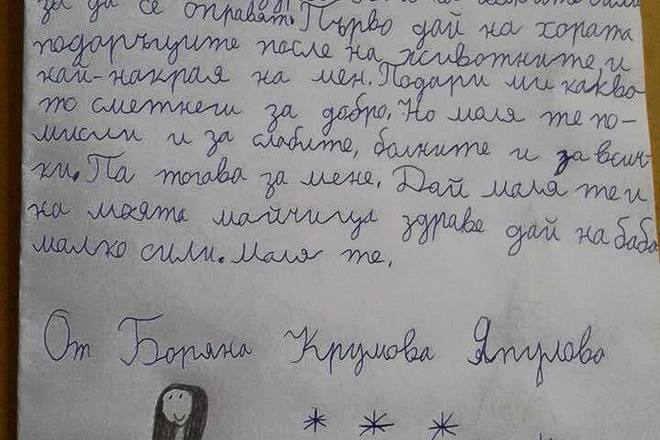 за да се оправят. Първо дай на хората
подаръците после на животните, и
най-накрая на мен. Подари ми какво
то сметнеш за добро. Но маля те по-
мисли и за слабите, болните и за всич-
ки. Па тогава за мене. Дай маля те и
на моята майчица здраве дай на баба
малко сили. Маля те.
От Боряна Крумова Япулова